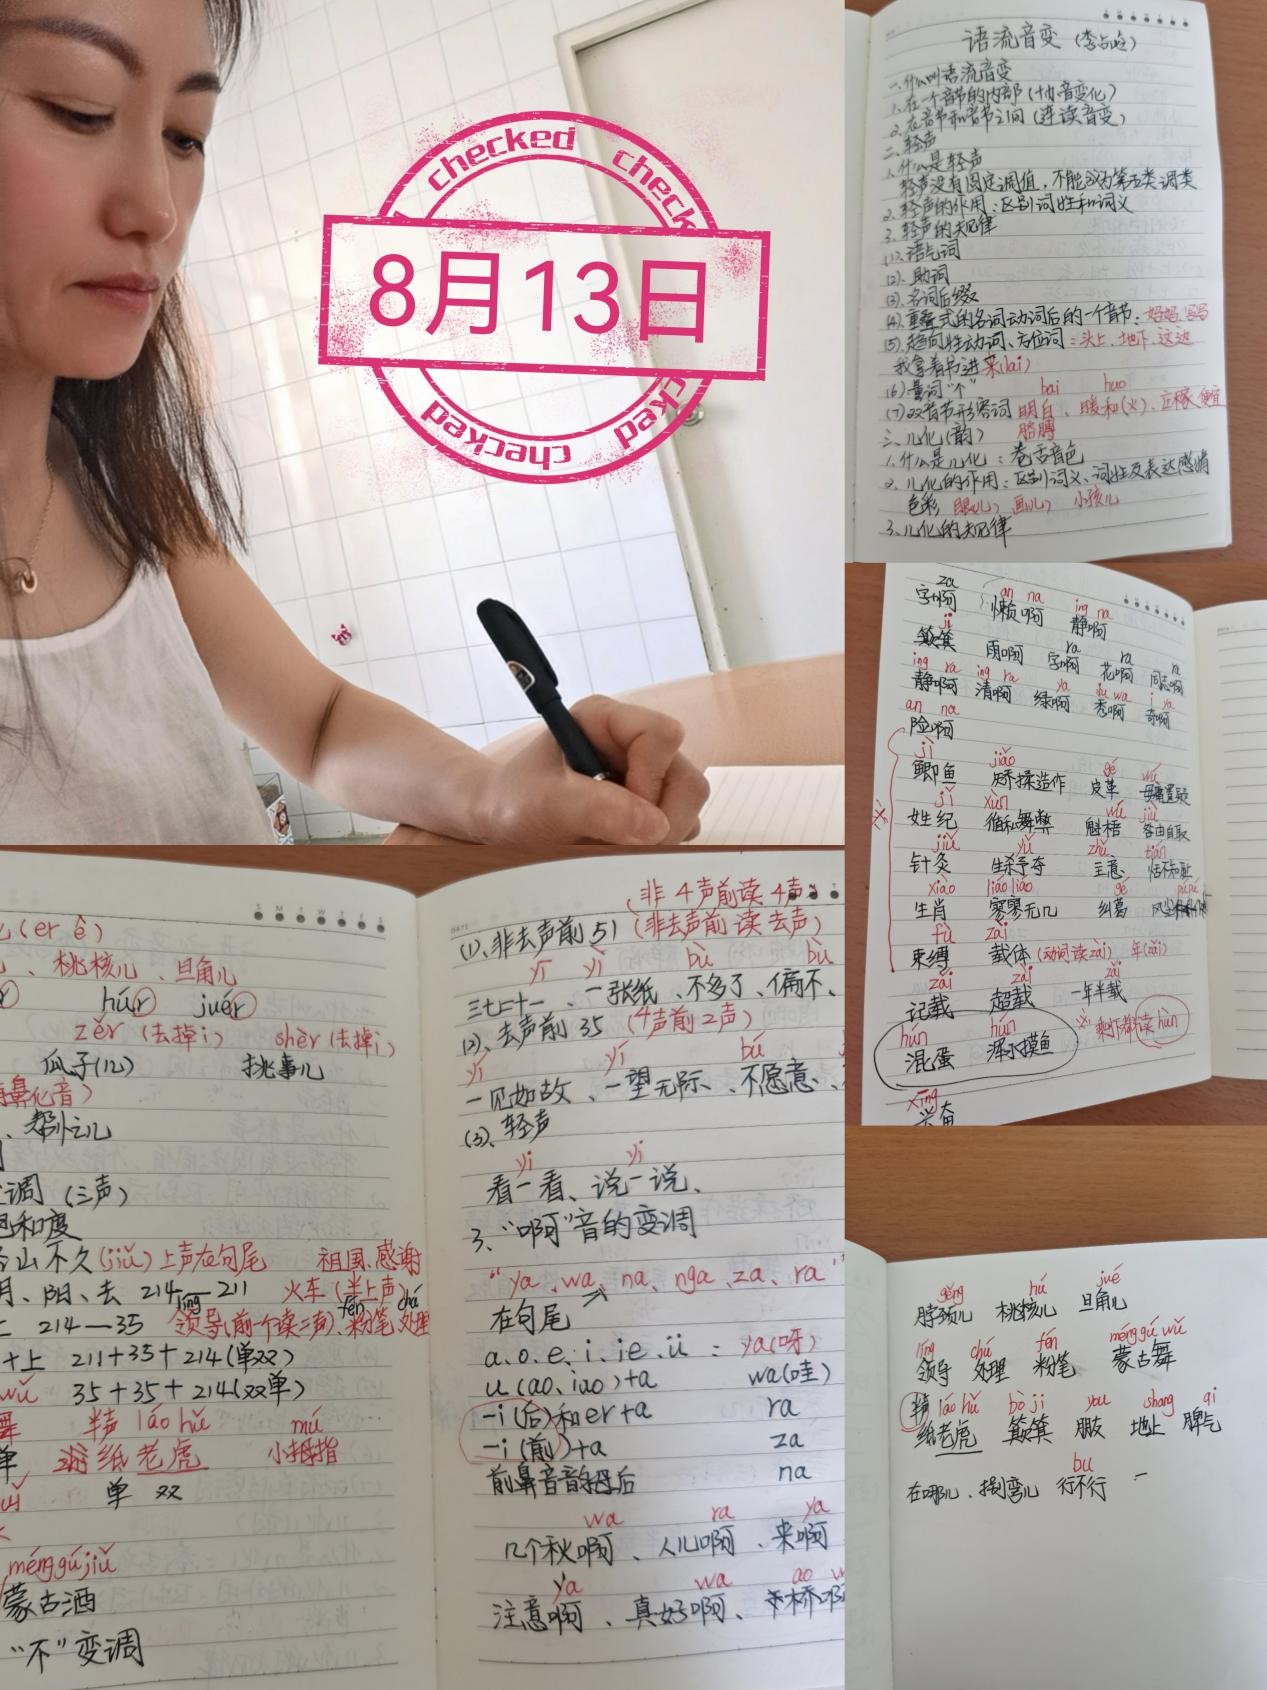 checked
8月13日
checked
checked
语流音变
一、什么叫语流音变
1、在一个音节的内部
2、在音节和音节之间(连读音变)
二、轻声
1、什么是轻声
轻声没有固定调值,不能成为第五类调类
2、轻声的作用:区别词性和词义
3、轻声的规律
(1)、语气词
(2)、助词
(3)、名词后缀
(4)、重叠式的名词动词后的一个音节、妈妈
(5)、趋向性动词、方位词:头上、地下、这边
我拿着书进来(lai)
(6)量词“个”
bai huo
(7)双音节形容词 明白、暖和(火)、庄稼、便宜
胳膊
三、儿化(韵)
1、什么是儿化:卷舌音色
2、儿化的作用:区别词义、词性及表达感情
色彩 眼儿、画儿、小孩儿
3、儿化的规律
za an na ing na
字啊 懒啊 静啊
ji ra ra ra
簸箕 雨啊 字啊 花啊 同志啊
ing ra ing ra ya iu wa i ya
静啊 清啊 绿啊 秀啊 奇啊
an na
险啊
jì jiǎo gé wú
鲫鱼 矫揉造作 皮革 毋庸置疑
jǐ xùn wú jiù
姓纪 徇私舞弊 魁梧 咎由自取
jiǔ yǔ zhǔ tián
针灸 生杀予夺 主意 恬不知耻
xiào liáo liáo gé púpú
生肖 寥寥无几 纠葛 风尘仆仆
fù zài
束缚 载体(动词读zài) 年(zǎi)
zǎi zài zǎi
记载 超载 一年半载
hún hún
混蛋 浑水摸鱼 剩下都读hùn
xīng
兴奋
(er ê)
、桃核儿、旦角儿
húr juér
zěr(去掉i) shèr(去掉i)
瓜子(儿) 挑事儿
鼻化音)
、帮忙儿
调(三声)
和度
山不久(jiǔ)上声在句尾 祖国、感谢
阴、阳、去 214—211 火车(半上声)
líng fén chú
上 214—35 领导(前一个读二声)、粉笔 处理
+上 211+35+214(单双)
wǔ 35+35+214(双单)
舞 半声 láo hǔ mú
单 纸老虎 小拇指
单 双
měnggújiǔ
蒙古酒
“不”变调
非4声前读4声
(1)、非去声前51(非去声前读去声)
yī yì bù bù
三七二十一、一张纸、不多了、偏不、
(2)、去声前35(4声前2声)
yí yí bú
一见如故、一望无际、不愿意、
(3)、轻声
yi yi
看一看、说一说、
3、“啊”音的变调
“ya、wa、na、nga、za、ra”
在句尾
a、o、e、i、ie、ü:ya(呀)
u(ao、iao)+a wa(哇)
-i(后)和er+a ra
-i(前)+a za
前鼻音韵母后 na
wa ra ya
几个秋啊、人儿啊、来啊
ya wa ao w
注意啊、真好啊、桥啊
gěng hú jué
脖颈儿 桃核儿 旦角儿
líng chú fén ménggúwǔ
领导 处理 粉笔 蒙古舞
半声 láo hǔ bò ji you shang qi
纸老虎 簸箕 朋友 地上 脾气
bu
在哪儿、拐弯儿 行不行 一